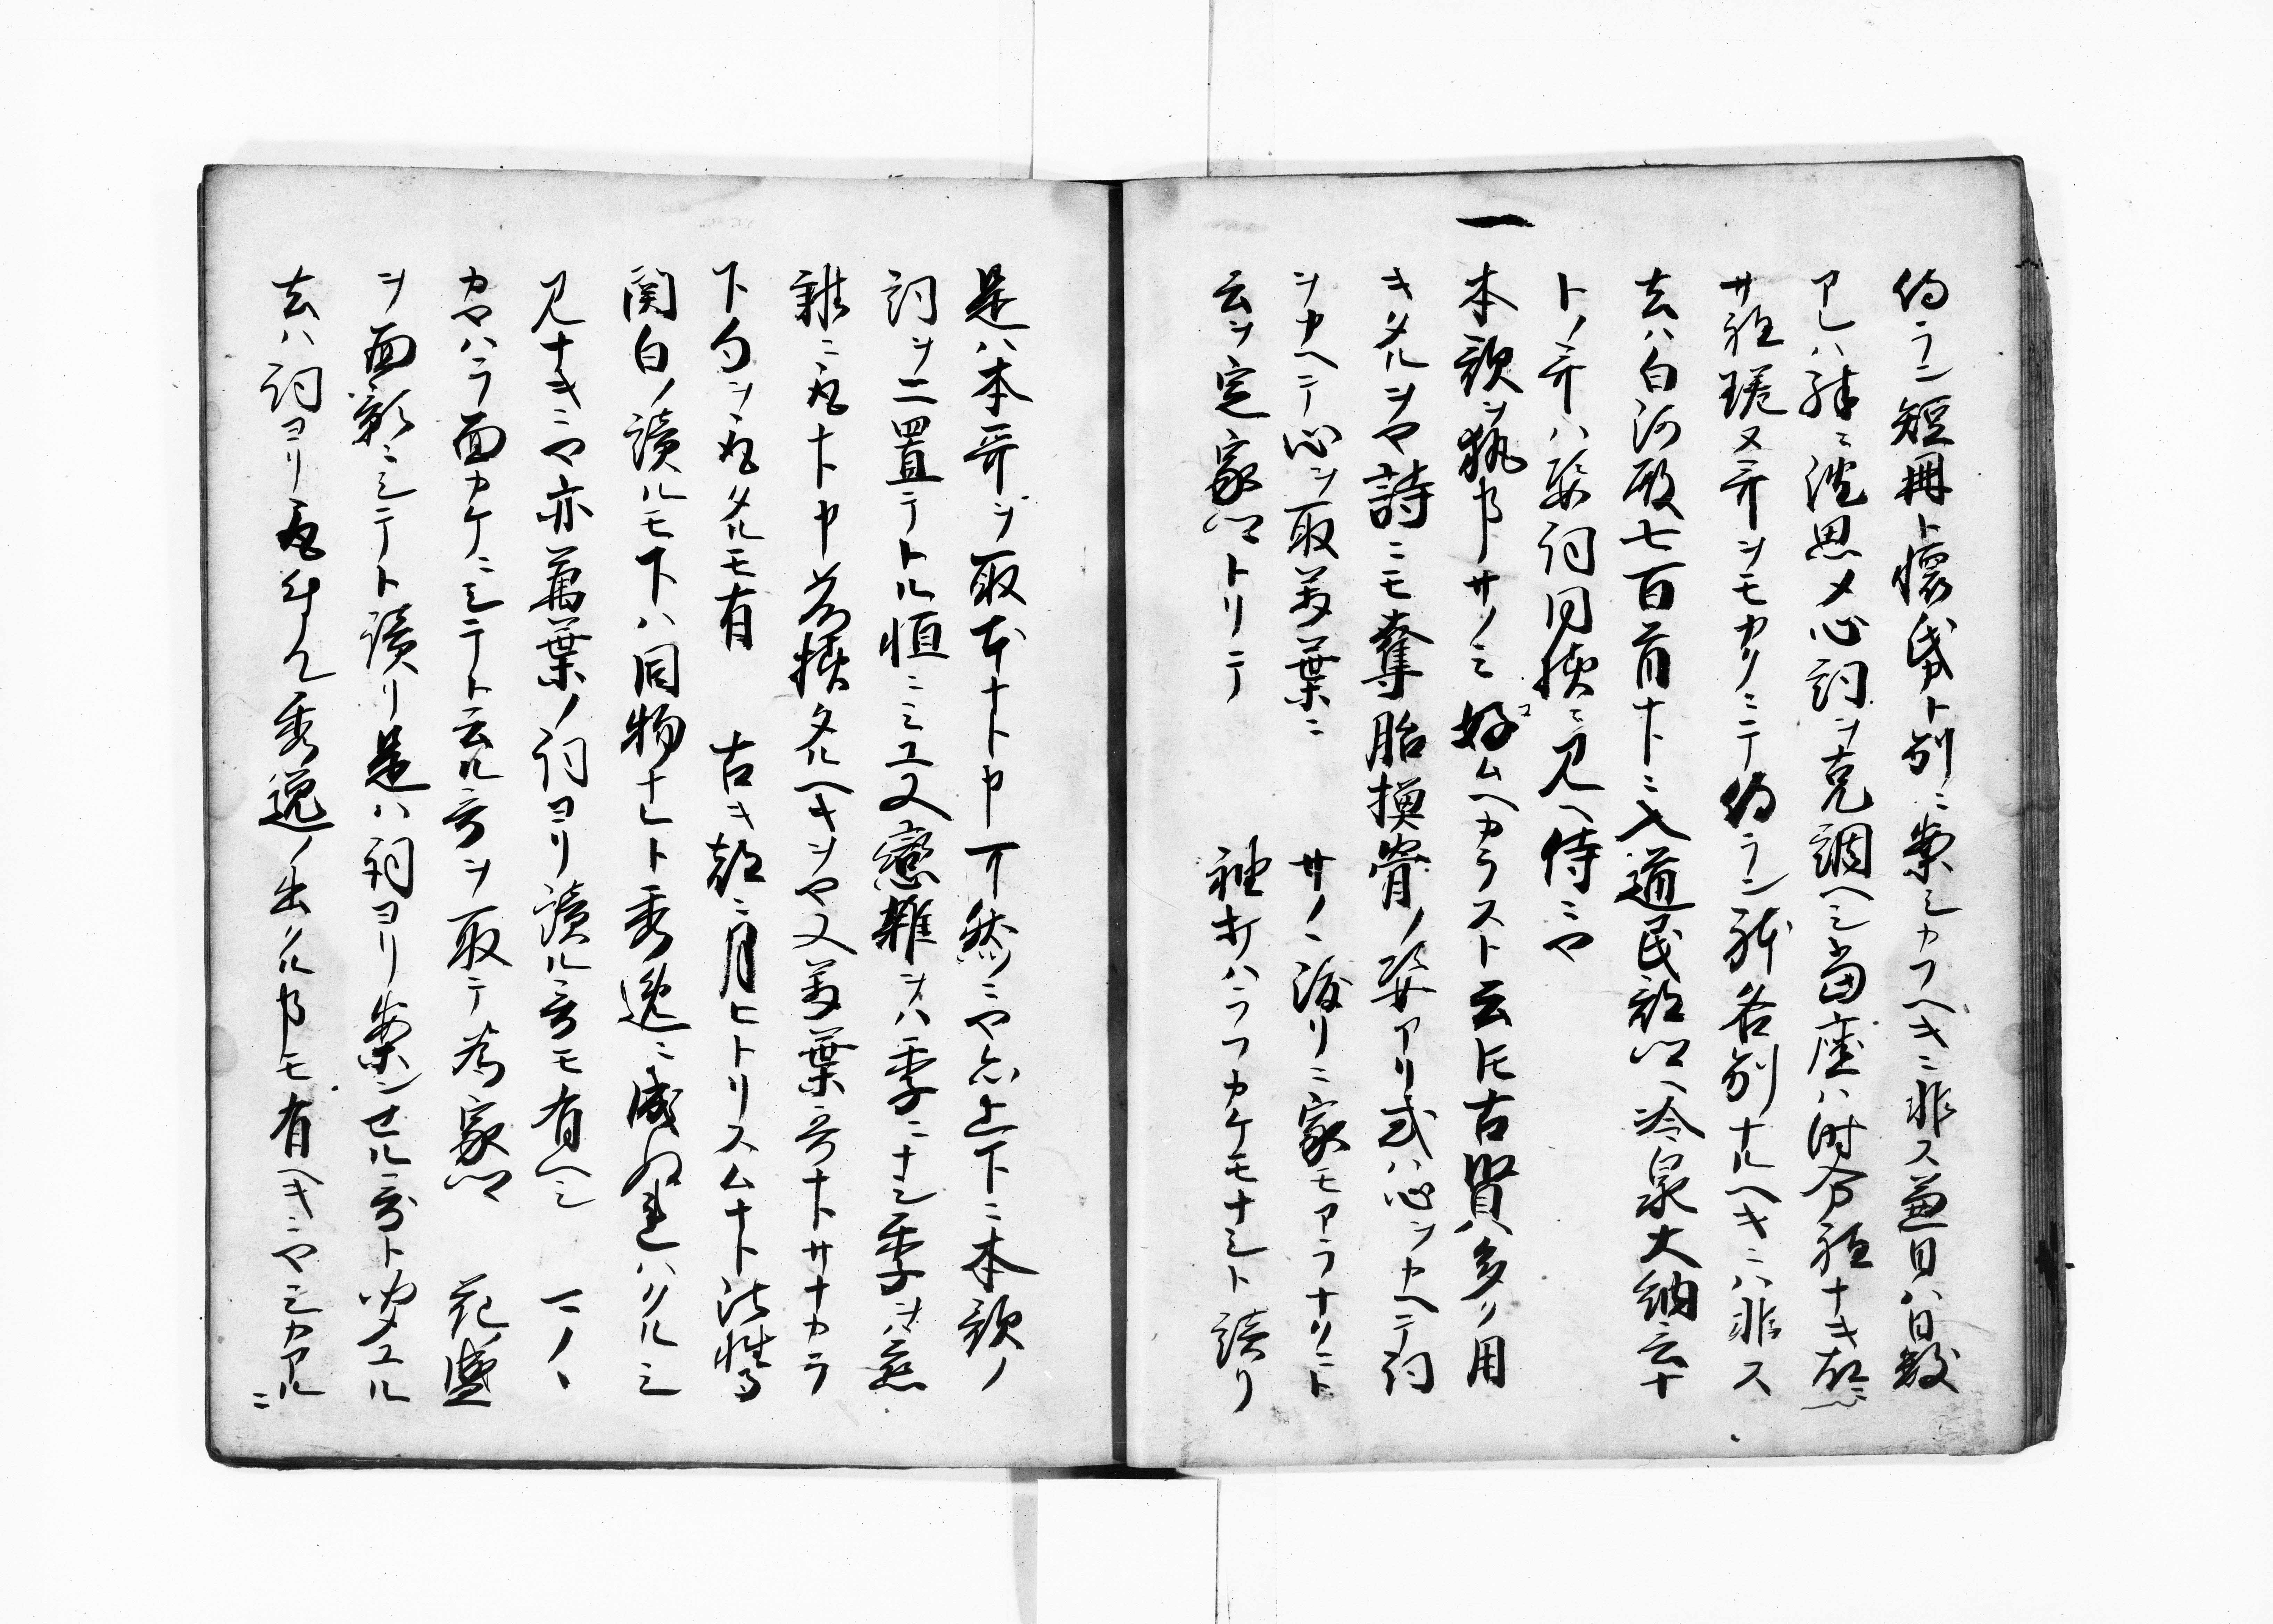 ラン短冊ト懐帋ト別ニ案シカフヘキニ非ス兼日ハ日数
アレハ 思メ心詞ヲ克調ヘシ当座ハ時分 ナキ
サ 又哥ヲモカクミニテ ラン 各別ナルヘキニハ非ス
去ハ白河殿七百首ナトニ入道民部卿ヘ冷泉大納言ナ
トノ哥ハ姿詞同様ニ見ヘ侍ニヤ
一本歌ヲ執事サノミ好ムヘカラスト云トモ古賢ハ多ク用
キタルヲヤ詩ニモ奪胎換骨ノ姿アリ或ハ心ヲカヘテ詞
ヲカヘテ心ヲ取万葉ニ サノヽ渡リニ家モアラナクニト
云ヲ定家卿トリテ 袖打ハラフカケモナシト読リ
是ハ本哥ヲ取 ナト申可然ニヤ 上下ニ本歌ノ
詞ヲ二置テトル恒ニミユ又戀雑ヲハ季ニナシ季ヲハ恋
雑ニ ナト申 様タルヘキヲヤ又万葉哥ナトサナカラ
下句ヲ タルモ有 古キ都ニ月ヒトリスムナト法性寺
関白ノ読ルモ下ハ同物ナレト秀逸ニ成ヌレハクルシ
見ナキニヤ亦萬葉ノ詞ヨリ読ル哥モ有ヘシ 一ノヽ
カヤハラ面カケニシテト云ル哥ヲ取テ為家卿 花盛
ヲ面影ニシテト読リ是ハ詞ヨリ案シセル哥ト聞ユル
去ハ詞ヨリ 秀逸ノ出クル事モ有ヘキニヤシカアルニ